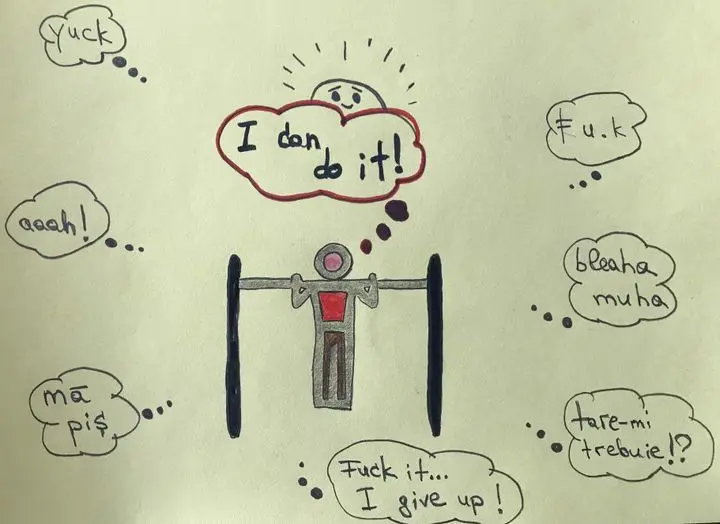 yuck
I can
do it!
Fu.k
aaah!
bleaha
muha
mā
piș
tare-mi
trebuie!?
Fuck it...
I give up!